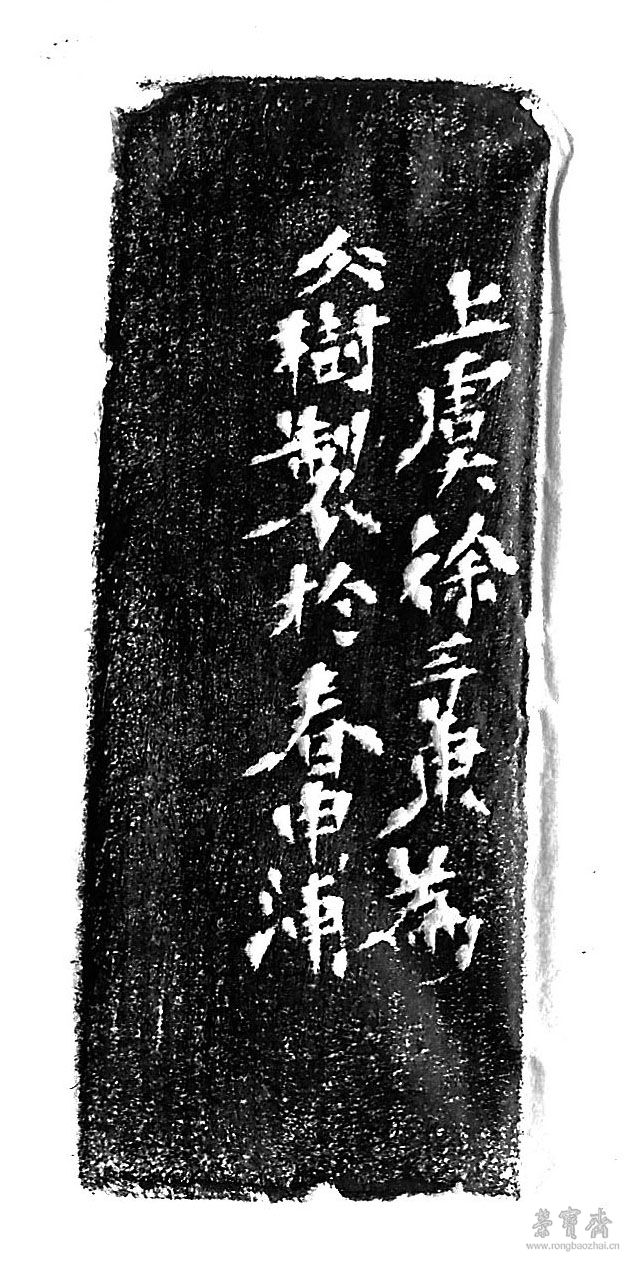 上虞徐三庚為
公樹製於春申浦
榮寶齋
www.rongbaozhai.cn